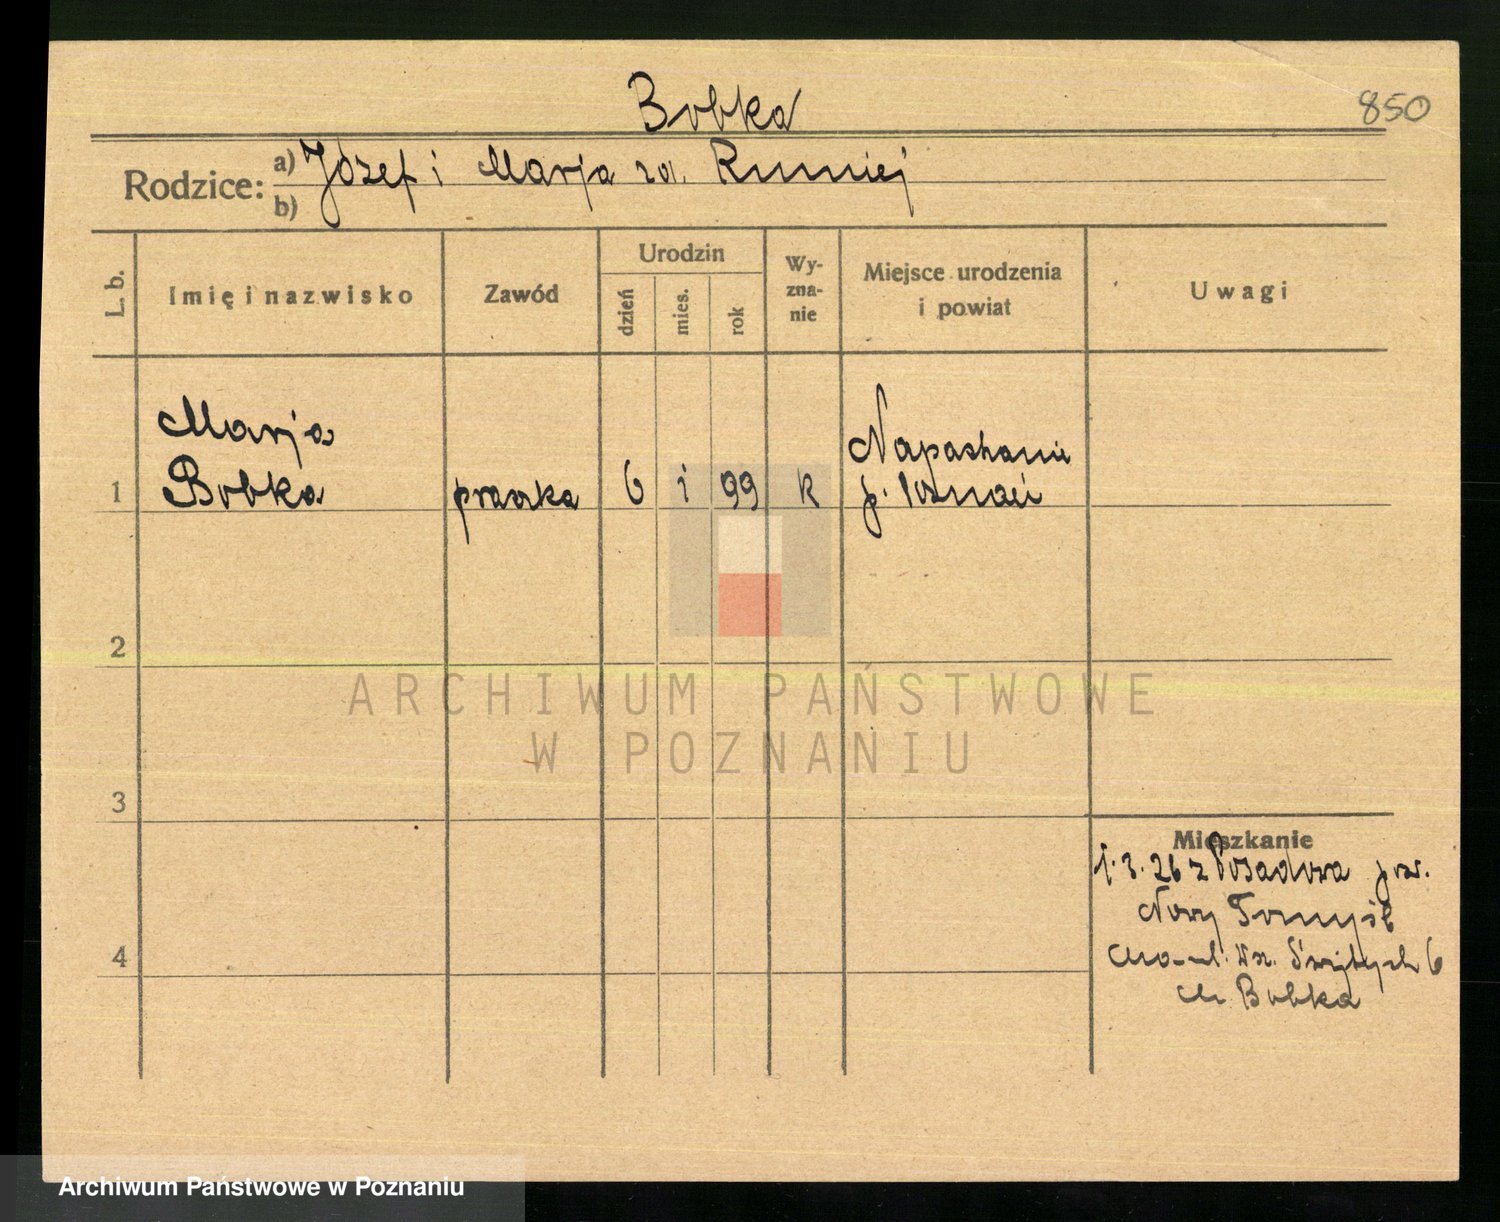 Bobka
850
Rodzice:
a) Józef i Marja
b)
L. b.
Imię i nazwisko
Zawód
Urodzin
dzień
mies.
rok
Wy-
zna-
nie
Miejsce urodzenia
i powiat
Uwagi
Marja
Bobka
1
praczka
6
i
99
k
Napachanie
p. Poznań
2
3
4
Mieszkanie
1.3.26 z Posadowa pow.
Nowy Tomyśl
ul. W. Świętych 6
Bobka
ARCHIWUM PAŃSTWOWE
W POZNANIU
Archiwum Państwowe w Poznaniu